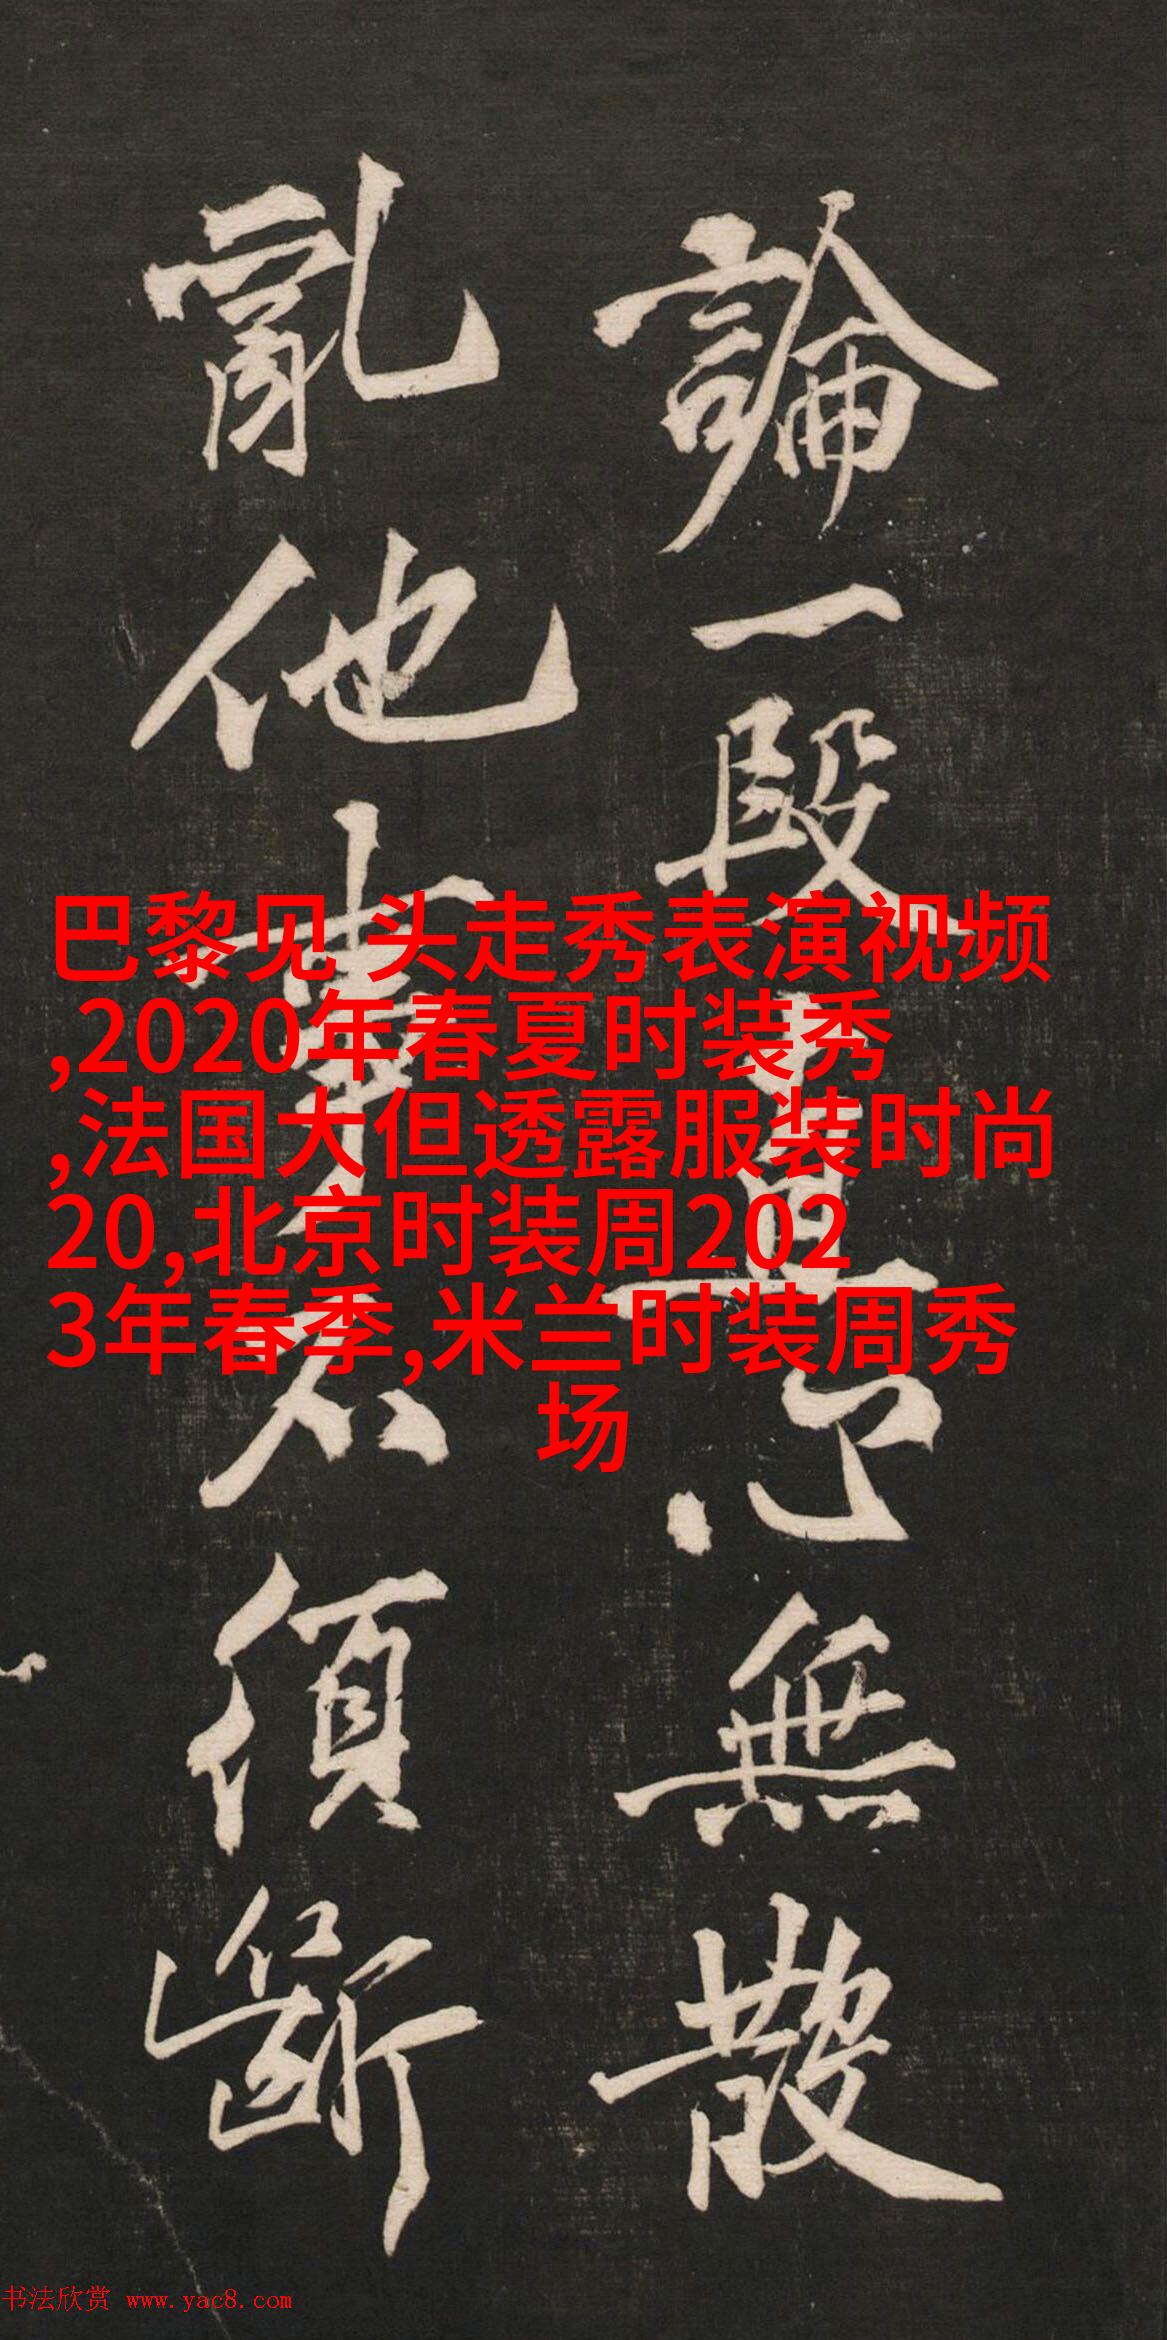 論一段真心無散
亂他事不須斷
巴黎见 头走秀表演视频
,2020年春夏时装秀
,法国大但透露服装时尚
20,北京时装周202
3年春季,米兰时装周秀
场
书法欣赏 www.yac8.com